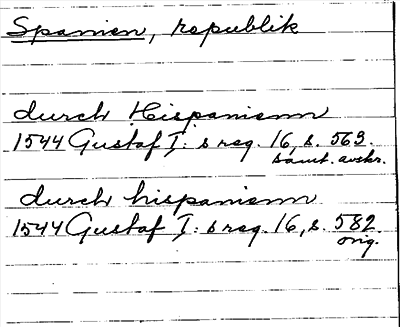 Spanien, republik
durch Hispanienn
1544 Gustaf I: s reg. 16, s. 563.
samt. avskr.
durch hispanienn
1544 Gustaf I: s reg. 16, s. 582.
orig.